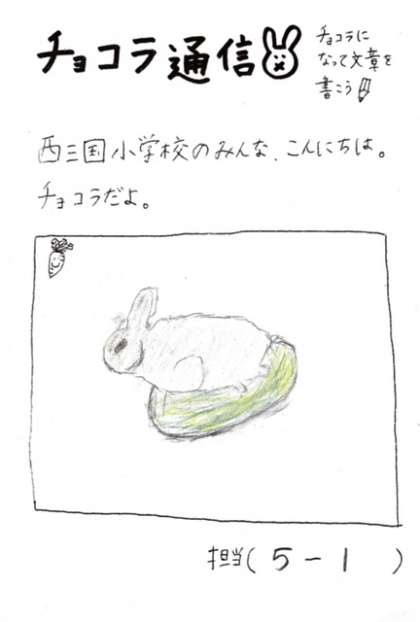 チョコラ通信
チョコラに
なって文章を
書こう
西三国小学校のみんな、こんにちは。
チョコラだよ。
担当(5-1)